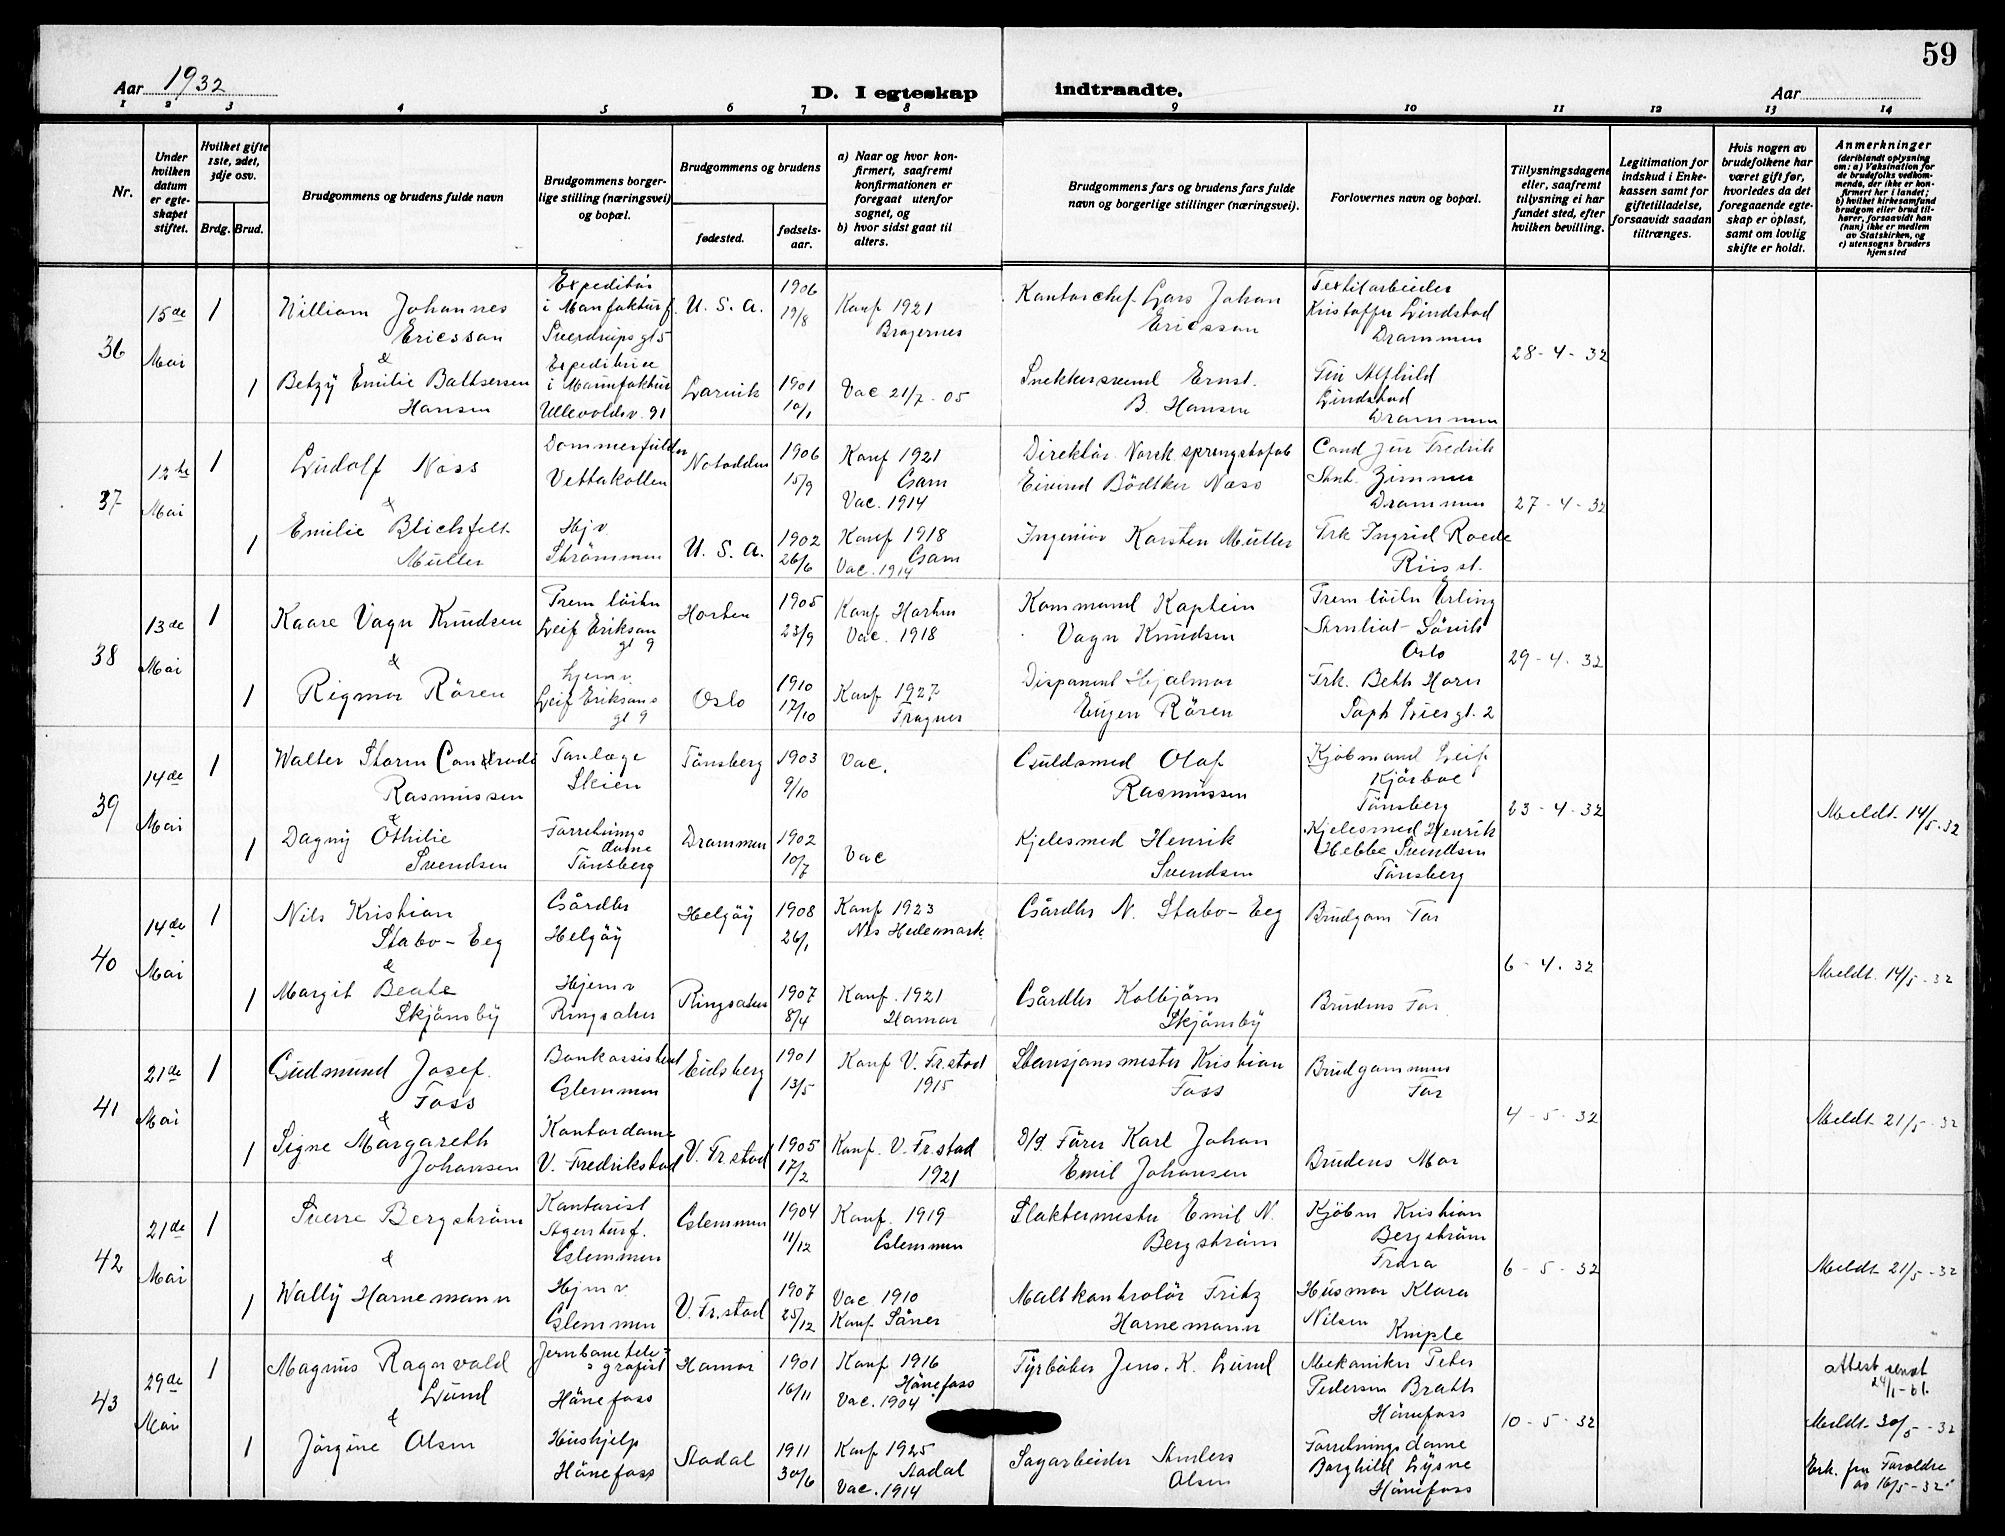 59
Aar 1932
D. I egteskap indtraadte.
Aar
1 2 3 4 5 6 7 8 9 10 11 12 13 14
Nr.
Under hvilken datum er egteskapet stiftet.
Hvilket gifte 1ste, 2det, 3dje osv.
Brdg. Brud.
Brudgommens og brudens fulde navn
Brudgommens borgerlige stilling (næringsvei) og bopæl.
Brudgommens og brudens
fødested.
fødselsaar.
a) Naar og hvor konfirmert, saafremt konfirmationen er foregaat utenfor sognet, og
b) hvor sidst gaat til alters.
Brudgommens fars og brudens fars fulde navn og borgerlige stillinger (næringsvei).
Forlovernes navn og bopæl.
Tillysningsdagene eller, saafremt tillysning ei har fundet sted, efter hvilken bevilling.
Legitimation for indskud i Enkekassen samt for giftetilladelse, forsaavidt saadan tiltrænges.
Hvis nogen av brudefolkene har været gift før, hvorledes da det foregaaende egteskap er opløst, samt om lovlig skifte er holdt.
Anmerkninger
(deriblandt oplysning om: a) Vaksination for de brudefolks vedkommende, der ikke er konfirmert her i landet; b) hvilket kirkesamfund brudgom eller brud tilhører, forsaavidt han (hun) ikke er medlem av Statskirken, og c) utensogns bruders hjemsted
36
15de Mai
1
William Johannes
Ericsson
&
Expeditør
i Manfakturf.
Sverdrups gt 5
U. S. A.
1906
19/8
Konf 1921
Bragernes
Kontorchef Lars Johan
Ericsson
Textilarbeider
Kristoffer Lindstad
Drammen
28-4-32
1
Betzy Emilie Baltsersen
Hansen
Expeditrice
i Manufaktur
Ullevoldsv. 91
Larvik
1901
10/1
Vac 21/7-05
Snekkersvend Ernst
B. Hansen
Fru Alfhild
Lindstad
Drammen
37
12te Mai
1
Ludolf Næss
&
Dommerfuldm
Vettakollen
Notodden
1906
15/9
Konf 1921
Gsam
Vac. 1914
Direktør Norsk sprengstofab
Eivind Bödtker Næss
Cand Jur Fredrik
Zimmer
Drammen
27-4-32
1
Emilie Blichfelt
Müller
Hjv.
Strömmen
U. S. A.
1902
26/6
Konf 1918
Gsam
Vac. 1914
Ingeniör Karsten Müller
Frk Ingrid Roede
Riis st.
38
13de Mai
1
Kaare Vagn Knudsen
&
Prem löitn
Leif Eriksøn
gt 9
Horten
1905
23/9
Konf Horten
Vac. 1918
Kommand Kaptein
Vagn Knudsen
Prem löitn Erling
Oslo
29-4-32
1
Rigmor Rören
Hjemv.
Leif Eriksøns
gt 9
Oslo
1910
17/10
Konf 1927
Frogner
Disponent Hjalmar
Eugen Rören
Frk. Beth Horn
Soph Liesgt. 2
39
14de Mai
1
Walter Storm Conradi
Rasmussen
&
Tanlæge
Skien
Tönsberg
1903
9/10
Vac.
Guldsmed Olaf
Rasmussen
Kjöbmand Leif
Kjörboe
Tönsberg
23-4-32
Meldt 14/5-32
1
Dagny Othilie
Svendsen
Forretnings
dame
Tönsberg
Drammen
1902
10/7
Vac
Kjelesmed Henrik
Svendsen
Kjelesmed Henrik
Hebbe Svendsen
Tönsberg
40
14de Mai
1
Nils Kristian
Stabo-Eeg
&
Gårdbr
Helgöy
Helgöy
1908
26/1
Konf 1923
Nes Hedemark
Gårdbr N. Stabo-Eeg
Brudgom Far
6-4-32
Meldt 14/5-32
1
Margit Beate
Skjönsby
Hjemv
Ringsaker
Ringsaker
1907
8/4
Konf. 1921
Hamar
Gårdbr Kolbjörn
Skjönsby
Brudens Far
41
21de Mai
1
Gudmund Josef
Foss
&
Bankassistent
Glemmen
Eidsberg
1901
13/5
Konf V. Fr.stad
1915
Stasjonsmester Kristian
Foss
Brudgommens
Far
4-5-32
Meldt 21/5-32
1
Signe Margareth
Johansen
Kontordame
V. Fredrikstad
V. Fr.stad
1905
17/2
Konf. V. Fr.stad
1921
D/S. Förer Karl Johan
Emil Johansen
Brudens Mor
42
21de Mai
1
Sverre Bergström
&
Kontorist
Agenturf.
Glemmen
Glemmen
1904
11/12
Konf. 1919
Glemmen
Slaktermester Emil N.
Bergström
Kjöbm Kristian
Bergström
Trara
6-5-32
Meldt 21/5-32
1
Wally Hornemann
Hjmv
Glemmen
V. Fr.stad
1907
25/12
Vac 1910
Konf Såner
Maltkontrolör Fritz
Hornemann
Husmor Klara
Nilsen
Kniple
43
29de Mai
1
Magnus Ragnvald
Lund
&
Jernbanetele-
grafist
Hönefoss
Hamar
1901
16/11
Konf 1916
Hönefoss
Vac. 1904
Fyrböter Jens. K. Lund
Mekaniker Peter
Pedersen Brath
Hönefoss
10-5-32
Attest sendt
24/1-61.
Meldt 30/5-32
Erk. fra Foreldre
av 16/5-32
1
Jörgine Olsen
Hushjelp
Hönefoss
Aadal
1911
30/6
Konf 1925
Aadal
Vac. 1914
Sagarbeider Anders
Olsen
Forretningsdame
Borghild Lysne
Hönefoss